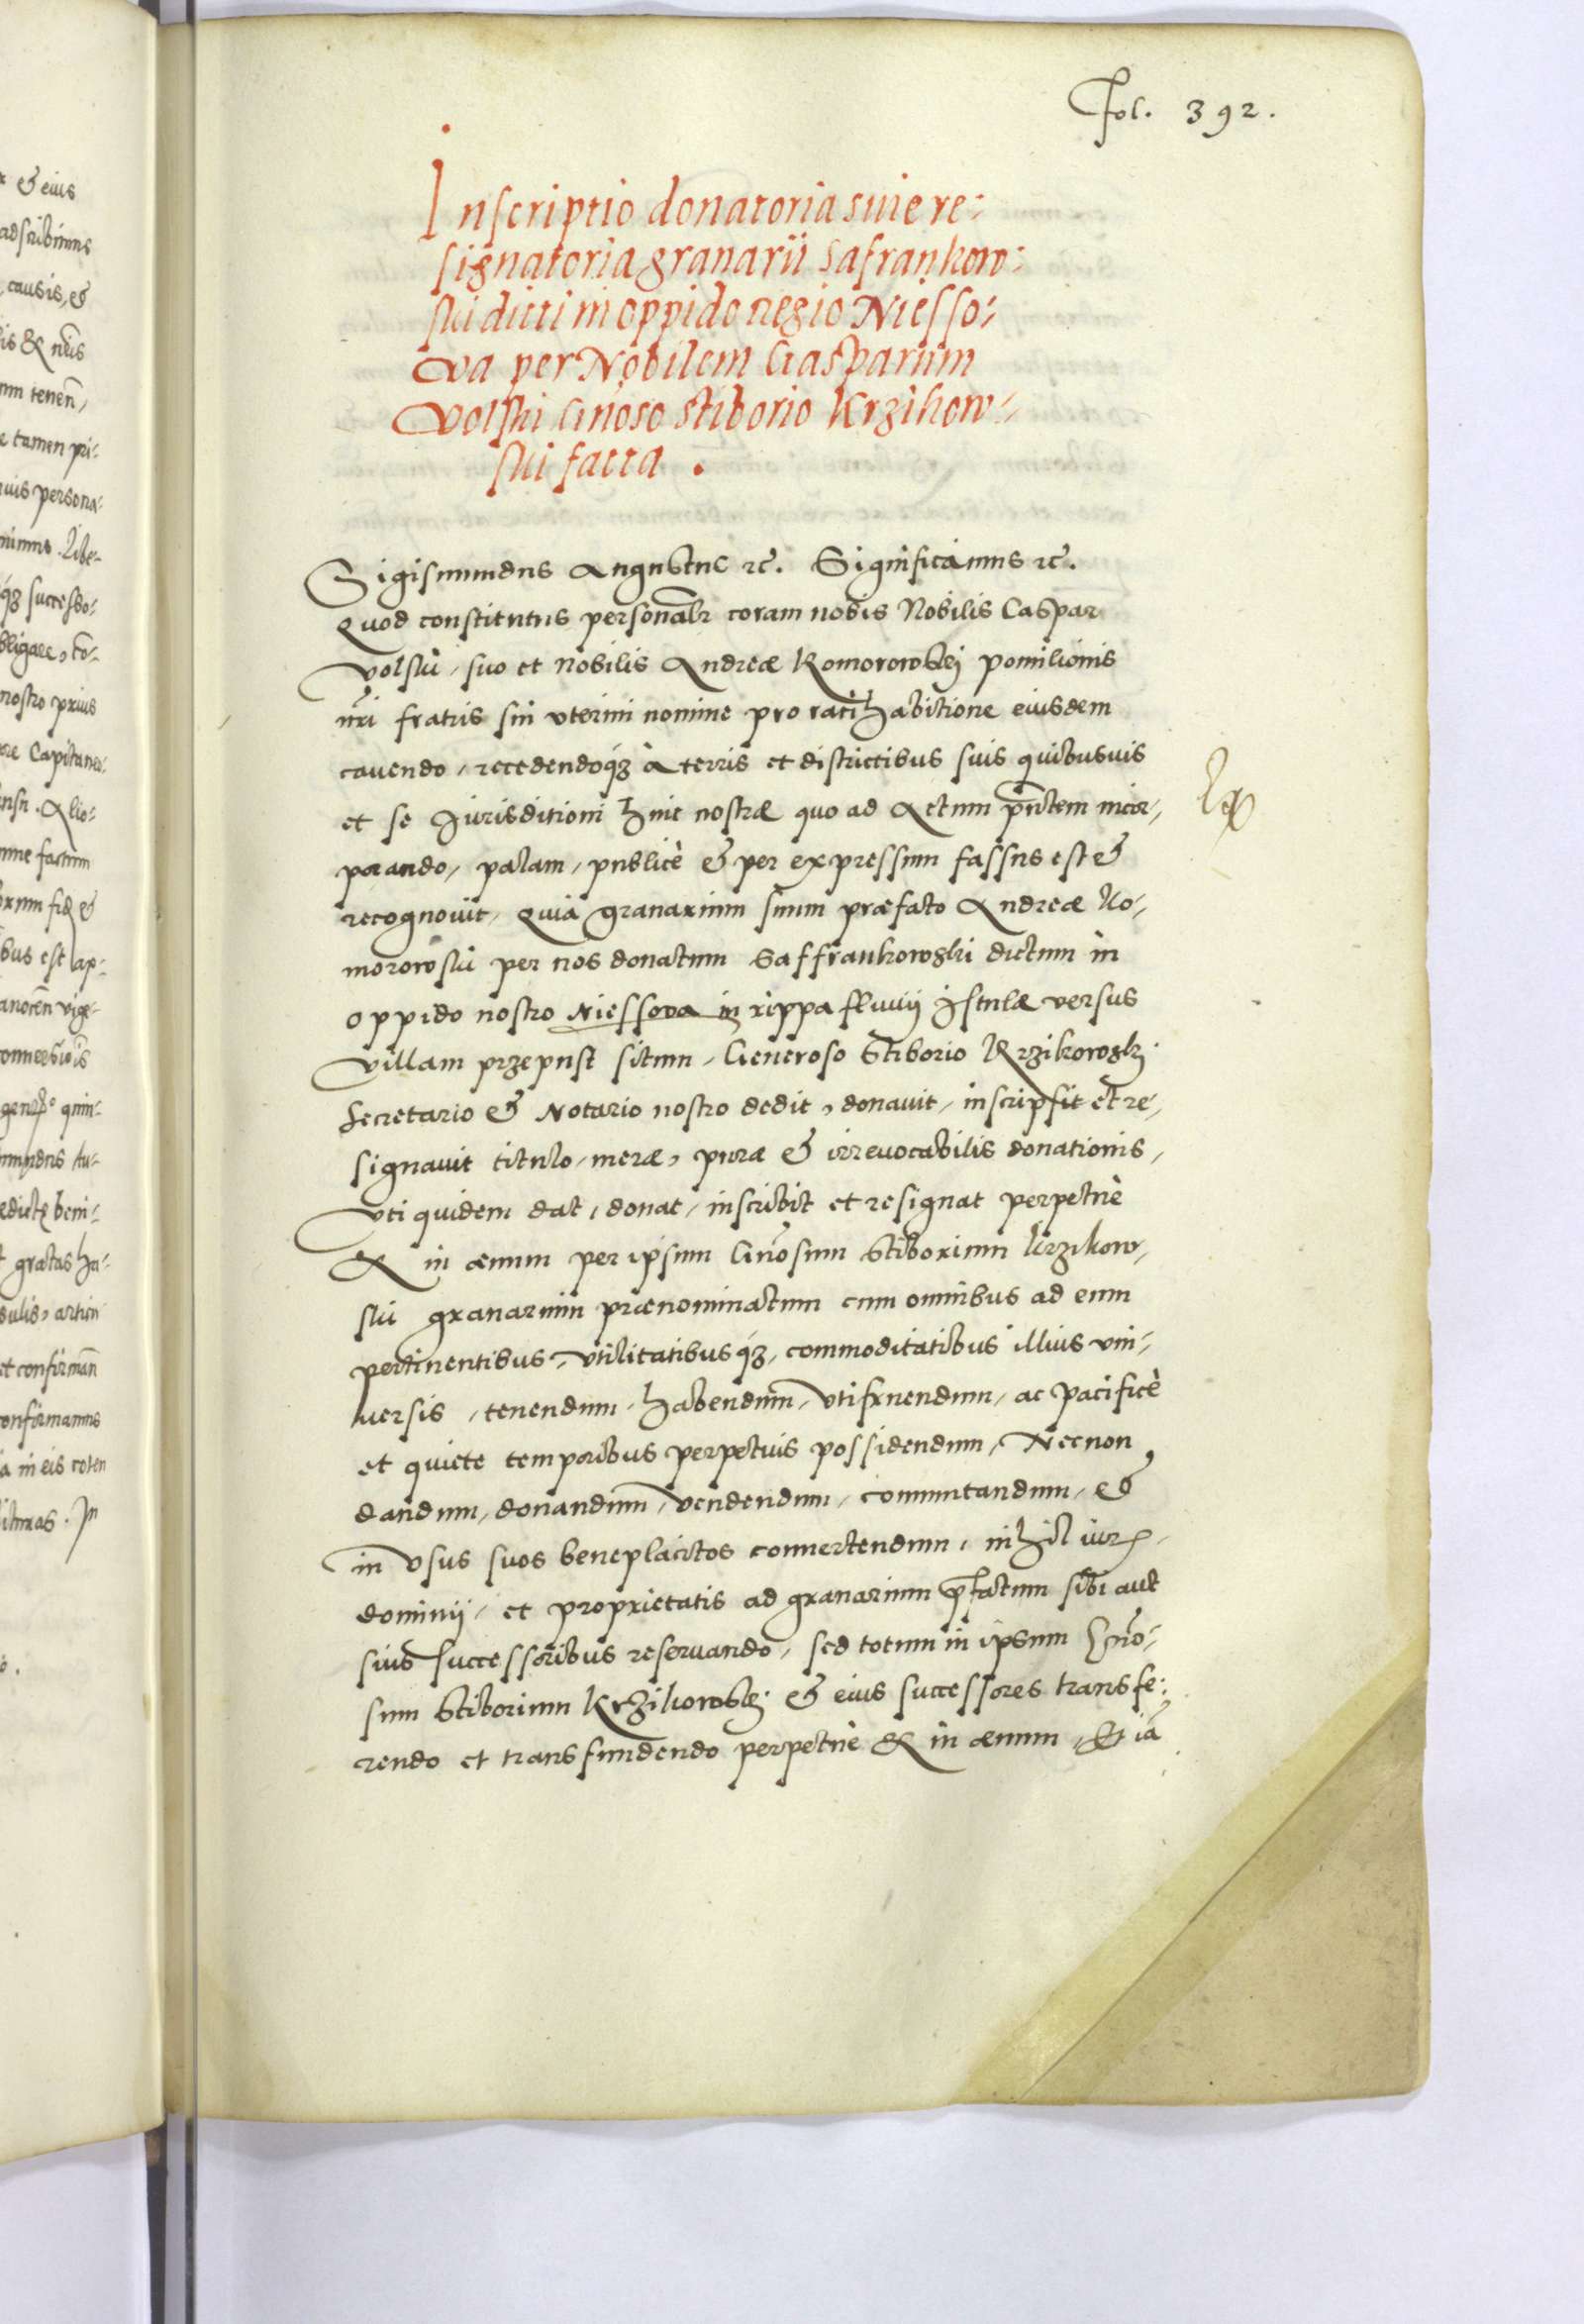 Fol. 392.
Inscriptio donatoria siue re:
signatoria granarii Safrankow:
ski dicti in oppido regio Niesso:
va per Nobilem Gasparum
Volski Gn̄oso Stiborio Krzikow:
ski facta.
Sigismundus Augustus ꝛc. Significamus ꝛc.
Quod constitutus personalr coram nobis Nobilis Caspar
Volski, suo et Nobilis Andreæ Komorowskij pomilionis
nr̄i fratris sui vterini nomine pro ratihabitione eiusdem
cauendo, recedendoqꝫ à terris et districtibus suis quibusuis
et se Jurisditioni huic nostræ quo ad Actum pn̄tem incor,
porando, palam, publicè & per expressum fassus est &
recognouit, Quia granarium suum præfato Andreæ Ko,
morowski per nos donatum Saffrankowski dictum in
oppido nostro Niessova in rippa fluuij Istulæ versus
Villam przepust situm, Generoso Stiborio Krzikowski
Secretario & Notario nostro dedit, donauit, inscripsit et re,
signauit titulo, meræ, puræ & irreuocabilis donationis,
Vti quidem dat, donat, inscribit et resignat perpetuè
& in æuum per ipsum Gn̄osum Stiborium Krzikow,
ski granarium prænominatum cum omnibus ad eum
pertinentibus, vtilitatibusqꝫ, commoditatibus illius vni,
uersis, tenendum, habendum, vtifruendum, ac pacificè
et quiete temporibus perpetuis possidendum, Necnon
dandum, donandum, vendendum, commutandum, &
in vsus suos beneplacitos conuertendum, nihil iur̄,
dominij, et proprietatis ad granarium p̄fatum sibi aut
suis successoribus reseruando, sed totum in ipsum Gn̄o,
sum Stiborium Krzikowskj & eius successores transfe:
rendo et transfundendo perpetuè & in æuum, Et iā
& eius
adscribimus
causis, &
tenen̄,
tamen pri:
uis persona:
Libe:
qꝫ successo:
nostro prius
Capitanea:
factum
bus est ap:
gratas ha:
et confirman̄
confirmamus
in eis coten